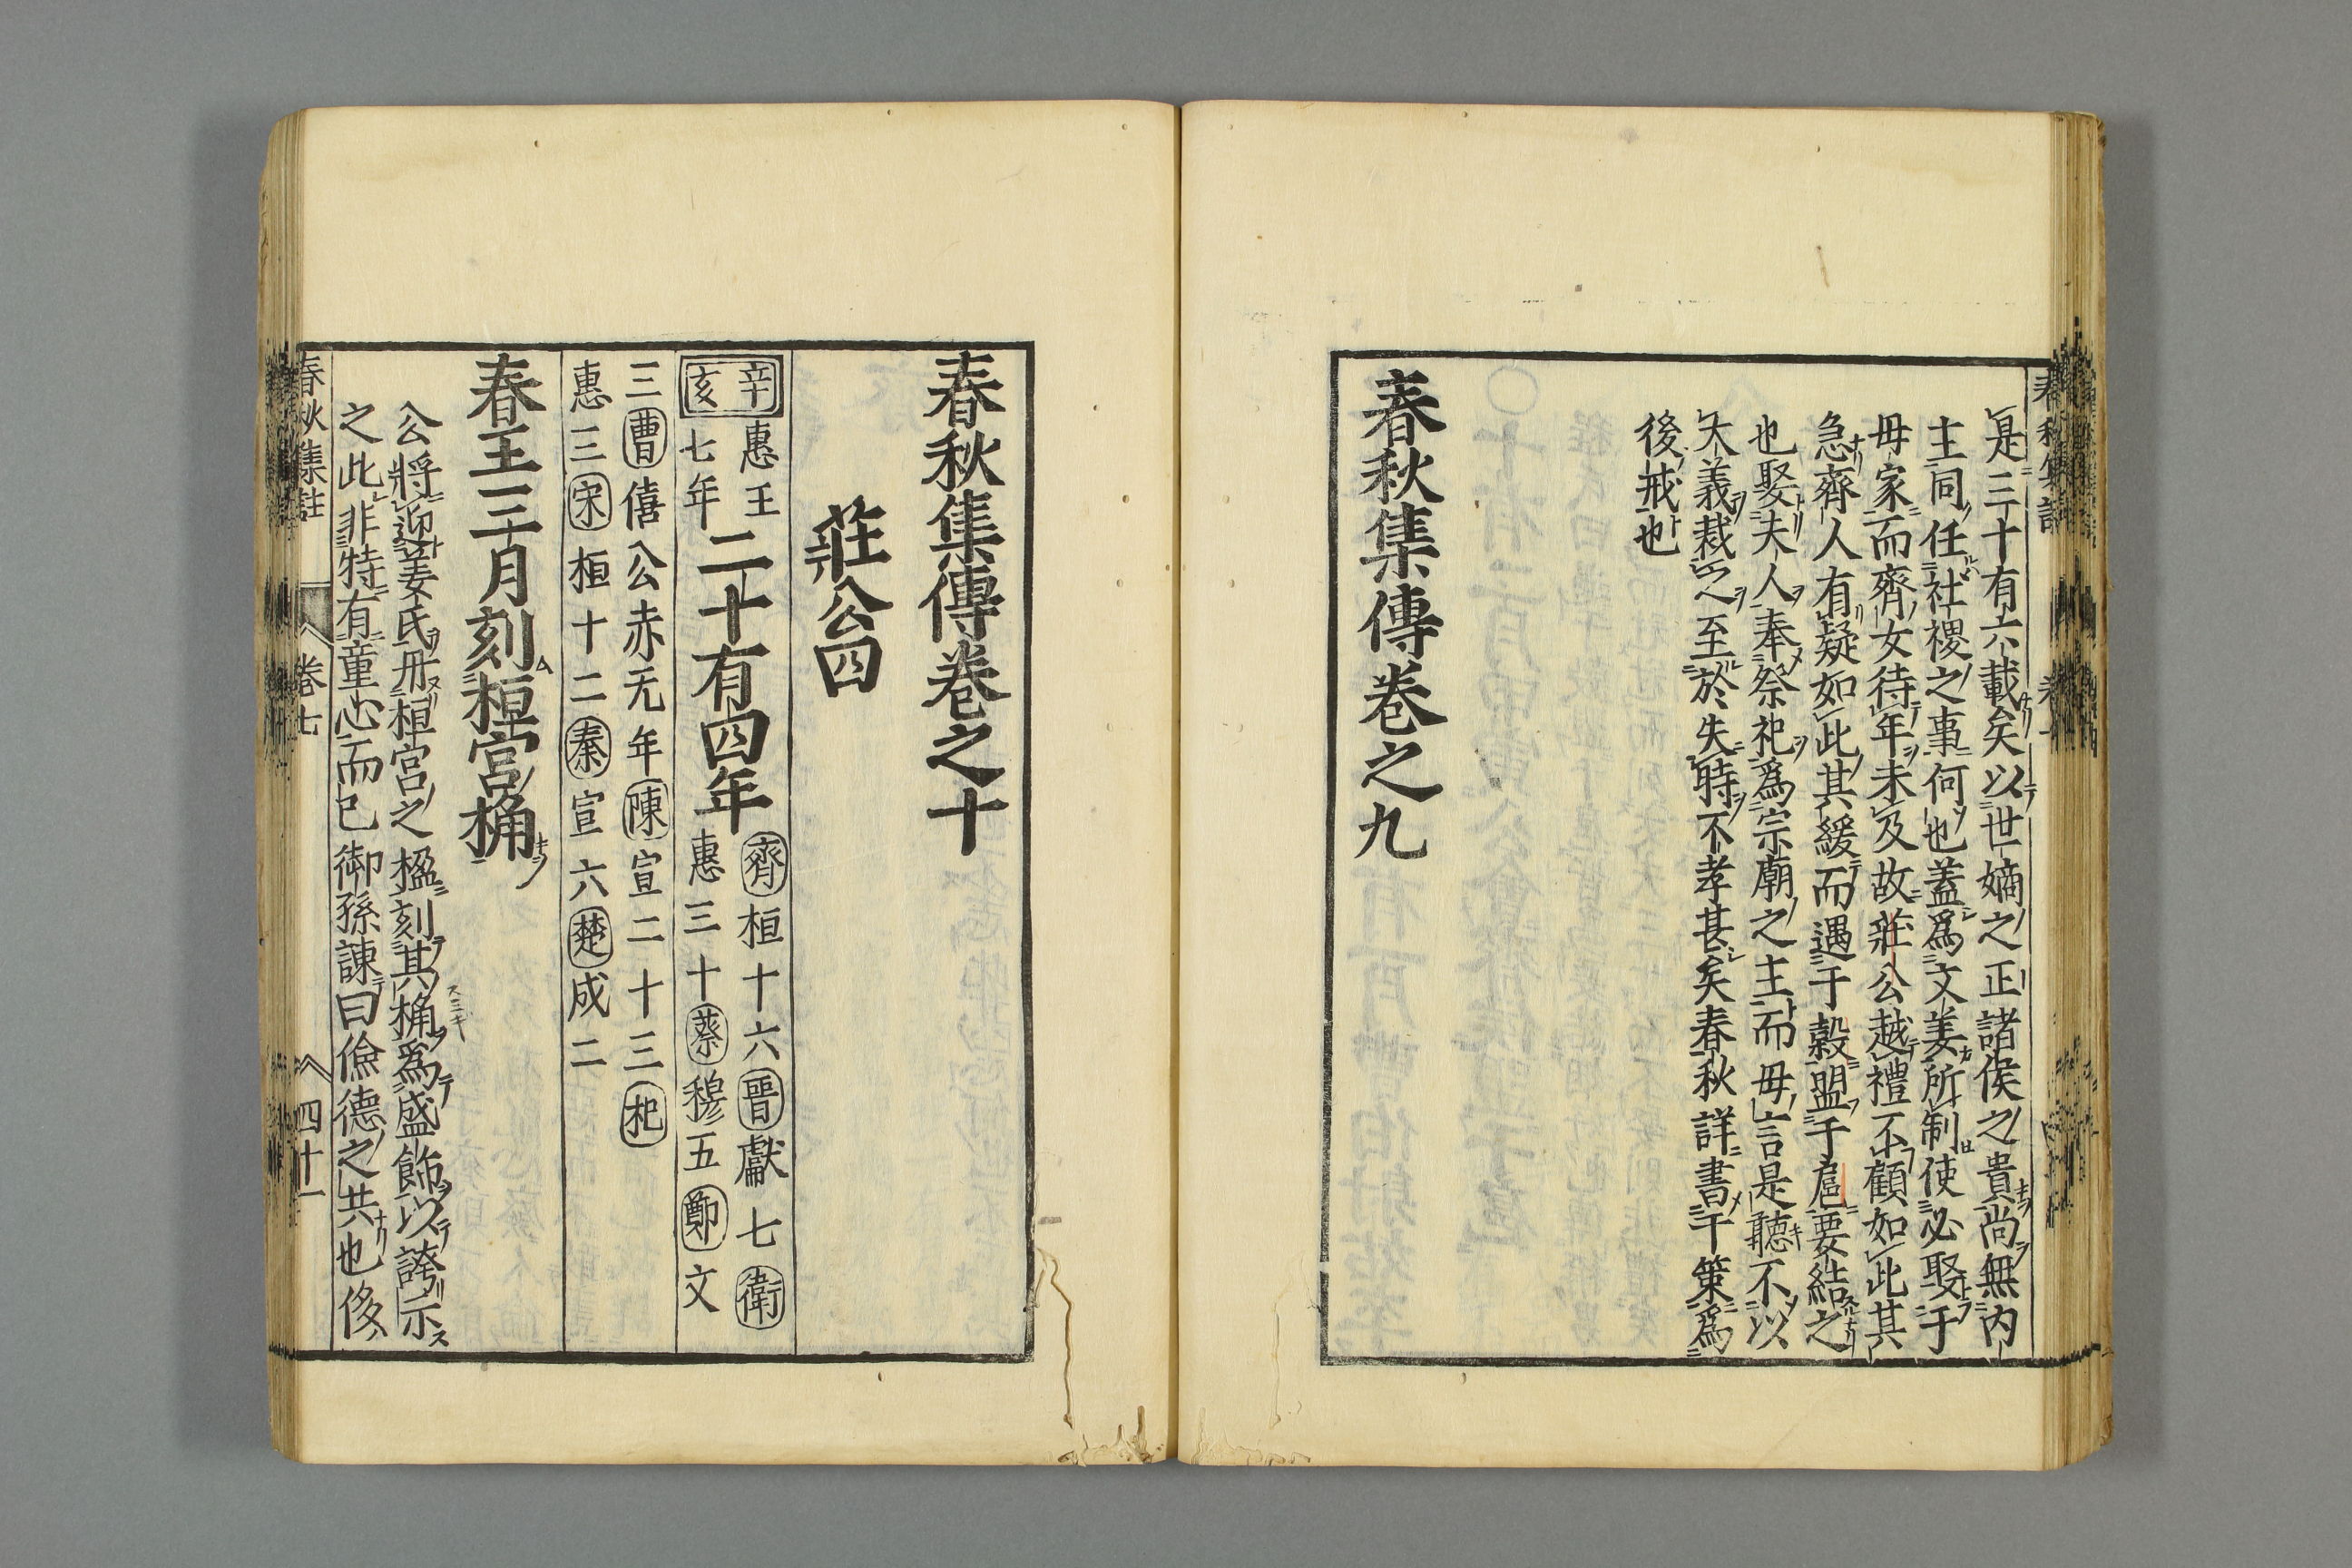 是三十有六載矣以世嫡之正諸侯之貴尚無内
主同任社稷之事何也蓋爲文姜所制使必娶于
母家而齊女待年未及故莊公越禮不顧如此其
急齊人有疑如此其緩而遇于穀盟于扈要結之
也娶夫人奉祭祀爲宗廟之主而母言是聽不以
大義裁之至於失時不孝甚矣春秋詳書于策爲
後戒也
春秋集傳卷之九
春秋集傳卷之十
莊公四
辛亥 惠王七年 二十有四年 齊桓十六晋獻七衛
惠三十蔡穆五鄭文
三曹僖公赤无年陳宣二十三杞
惠三宋桓十二秦宣六楚成二
春王三月刻桓宮桷
公將迎姜氏丹桓宮之楹刻其桷爲盛飾以誇示
之此非特有童心而已御孫諫曰儉德之共也侈
春秋集註 卷七 四十一